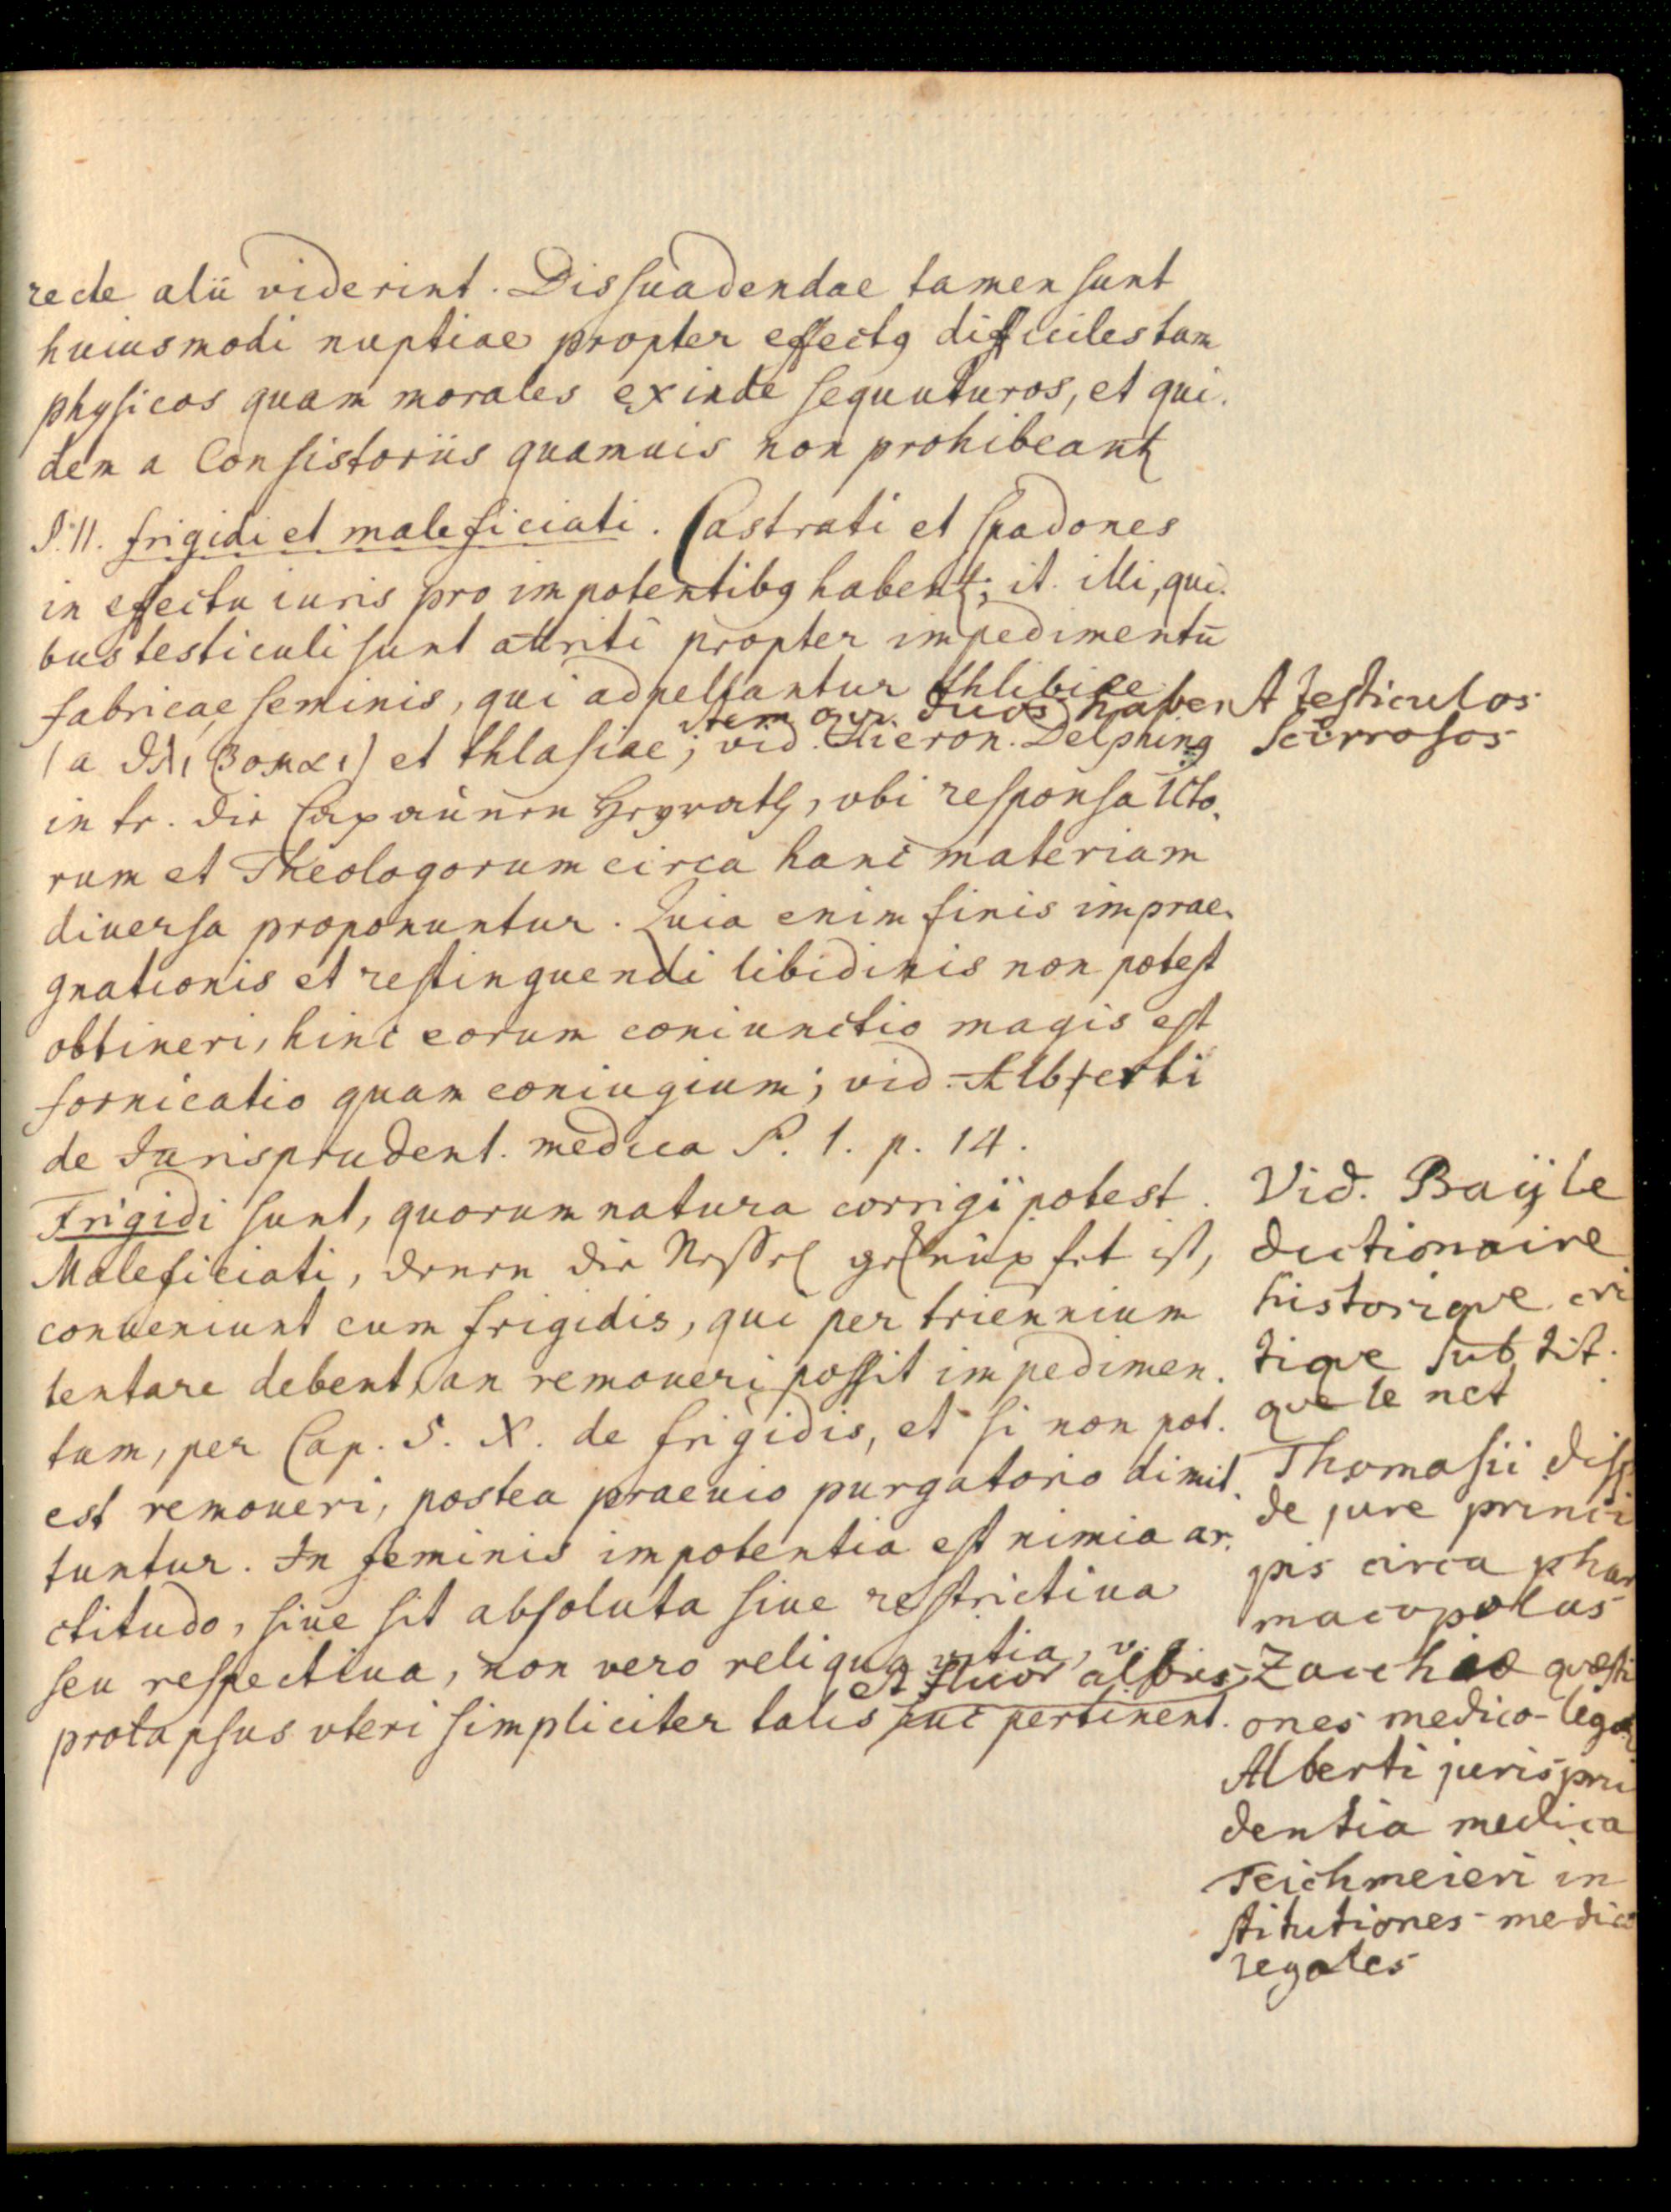 recte alii viderint. Dissuadendae tamen sunt
huiusmodi nuptiae propter effectg difficiles tam
physicos quam morales exinde sequuturos, et qui-
dem a Consistoriis quamuis non prohibeant
§. 11. frigidi et maleficiati. Castrati et spadones
in effectu iuris pro impotentibg habent; it. illi, qui-
bus testiculi sunt attriti propter impedimentū
fabricae seminis, qui adpellantur thlibiae
item qui duos habent testiculos
scirrosos
(a θλίβομαι) et thlasiae; vid. Hieron. Delphing
in tr. die Capaunen Heyrath, vbi responsa ICto-
rum et Theologorum circa hanc materiam
diuersa proponuntur. Quia enim finis imprae-
gnationis et restinguendi libidinis non potest
obtineri, hinc eorum coniunctio magis est
fornicatio quam coniugium; vid. Alberti
de Jurisprudent. medica P. 1. p. 14.
Frigidi sunt, quorum natura corrigi potest.
Maleficiati, denen die Nestel geknüpfet ist,
conueniunt cum frigidis, qui per triennium
tentare debent, an remoueri possit impedimen-
tum, per Cap. 5. X. de frigidis, et si non pot-
est remoueri, postea praeuio purgatorio dimit-
tuntur. In feminis impotentia est nimia ar-
ctitudo, siue sit absoluta siue restrictiua
seu respectiua, non vero reliqua vitia, v. g.
et fluor albus
prolapsus vteri simpliciter talis huc pertinent.
Vid. Bayle
dictionaire
historique cri
tique sub tit.
quelenet
Thomasii diss.
de jure princi
pis circa phar
macopolas
Zacchiae quæsti
ones medico-lega
Alberti jurispru
dentia medica
Teichmeieri in
stitutiones medico
legales